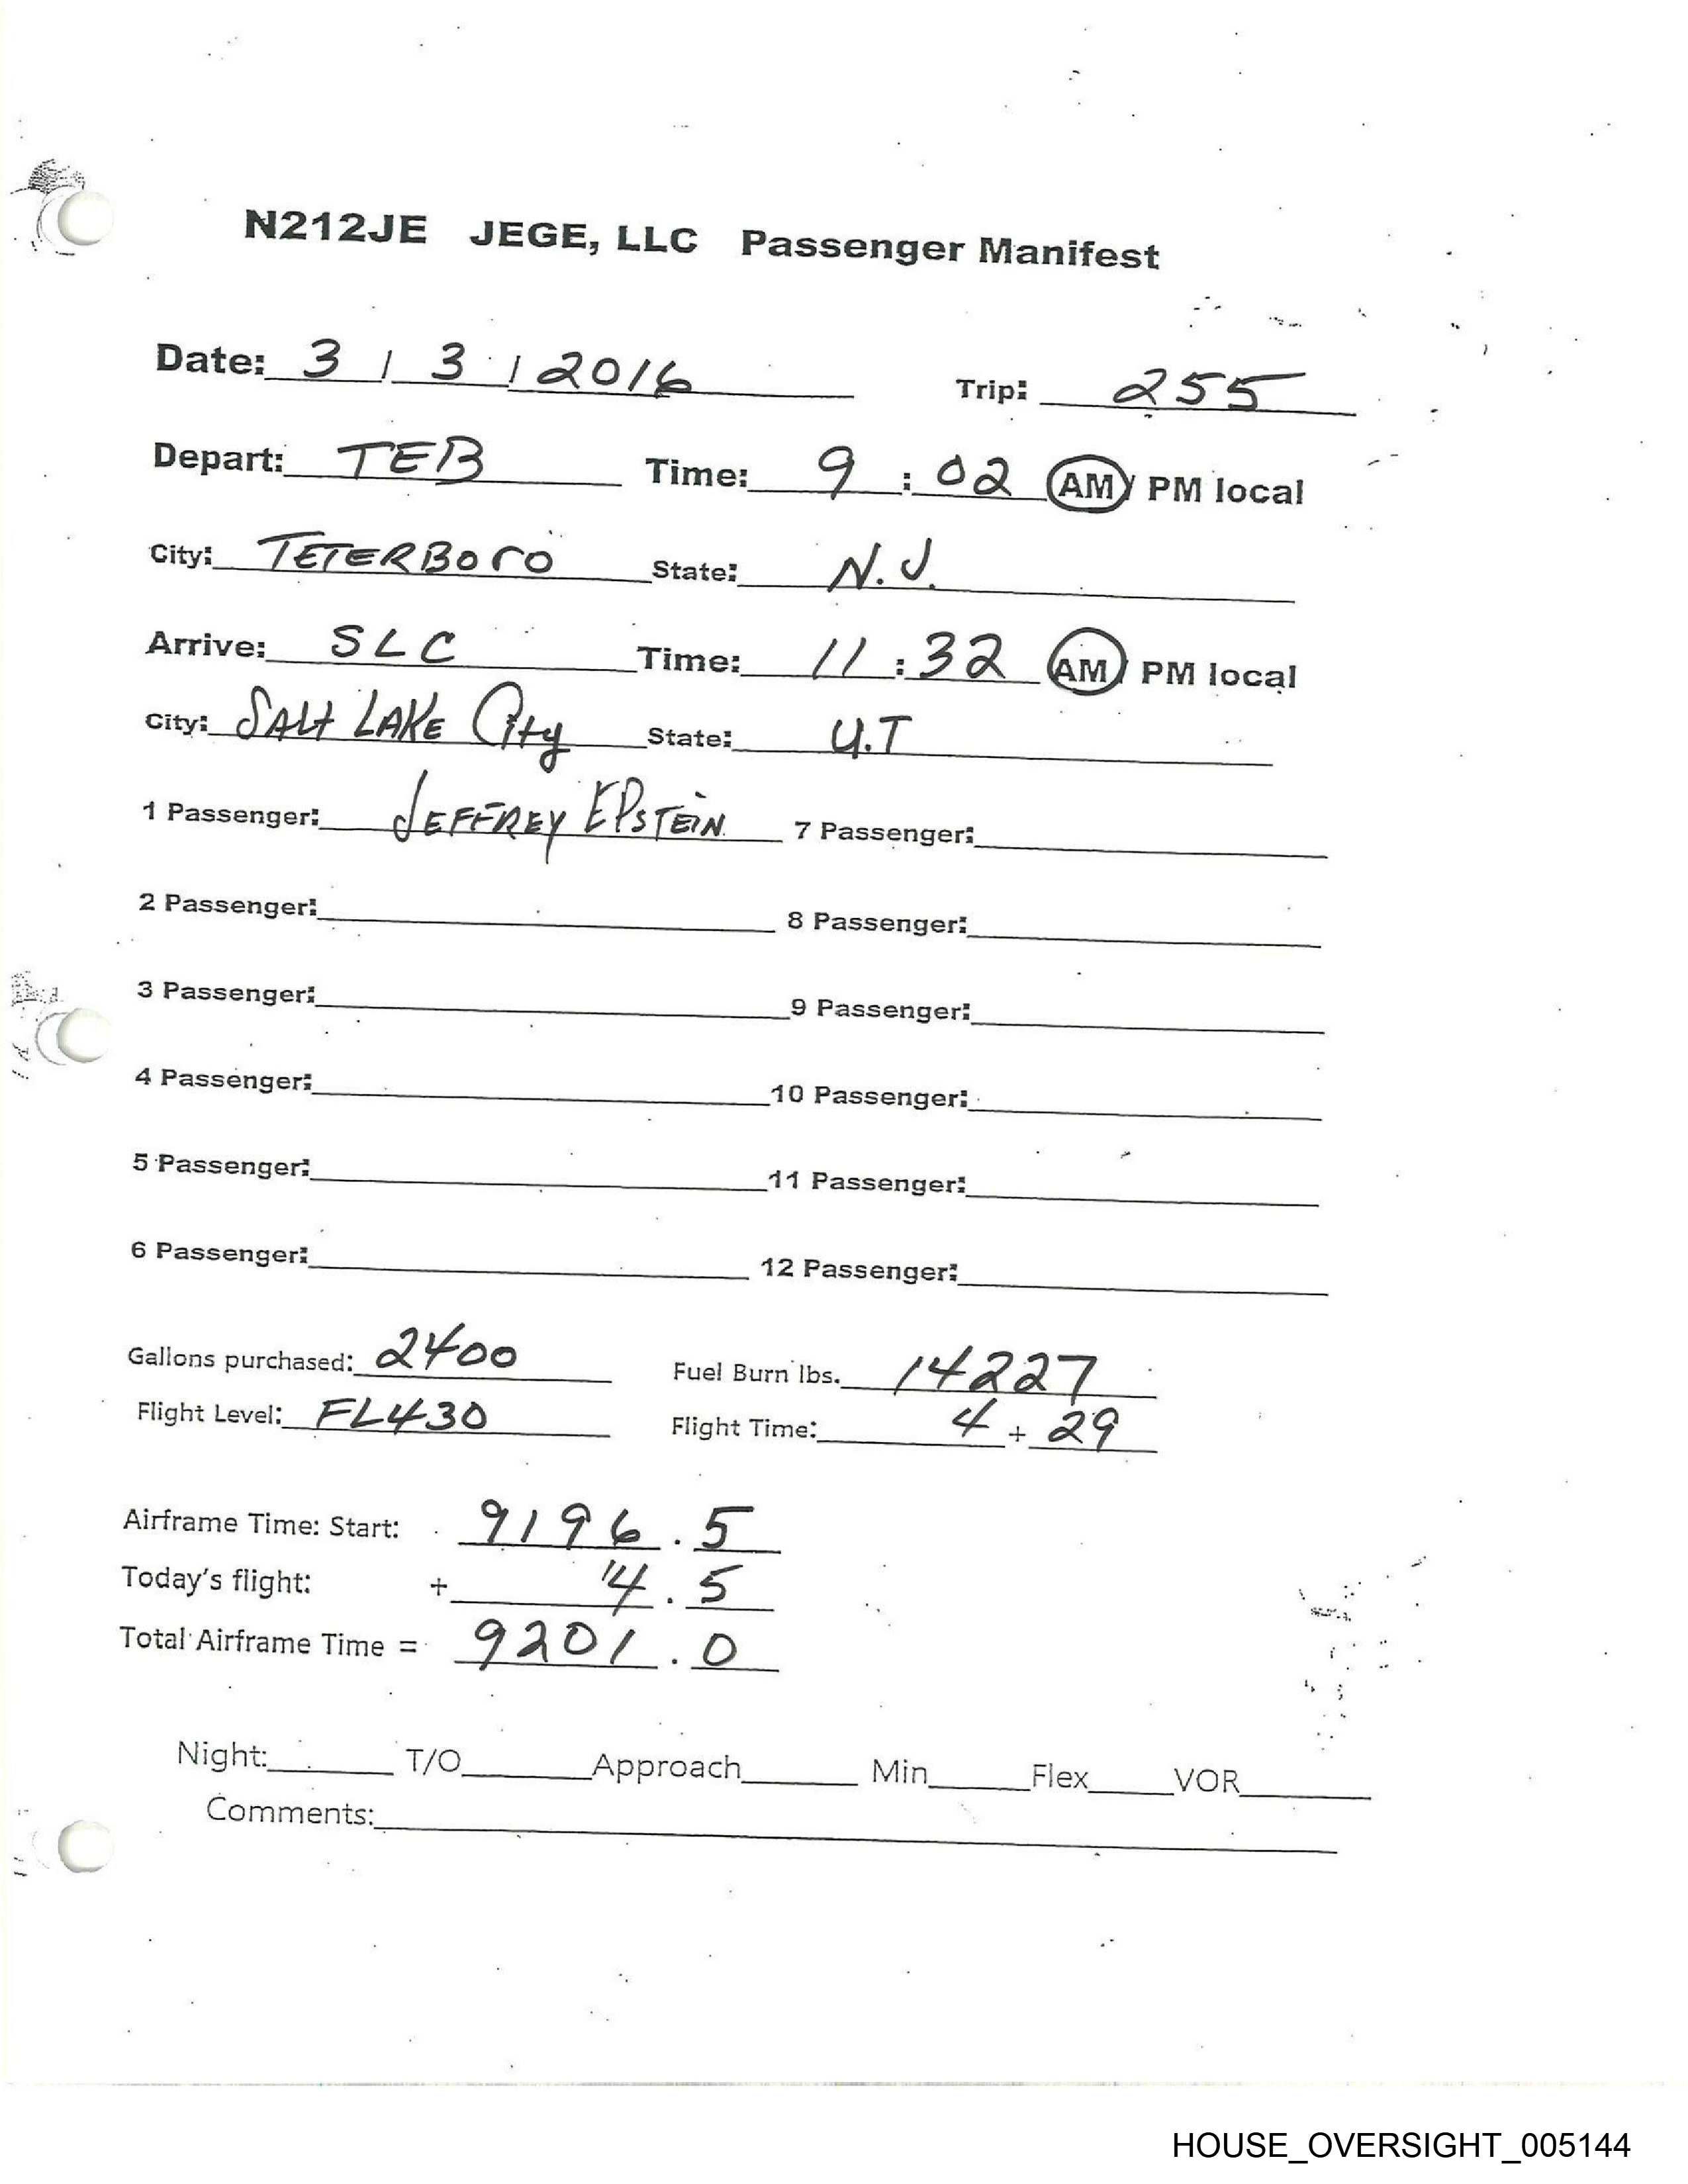 N212JE JEGE, LLC Passenger Manifest
Date: 3 / 3 / 2016 Trip: 255
Depart: TEB Time: 9 : 02 AM / PM local
City: TETERBORO State: N.J.
Arrive: SLC Time: 11 : 32 AM / PM local
City: SALT LAKE City State: U.T
1 Passenger: JEFFREY EPSTEIN 7 Passenger:
2 Passenger: 8 Passenger:
3 Passenger: 9 Passenger:
4 Passenger: 10 Passenger:
5 Passenger: 11 Passenger:
6 Passenger: 12 Passenger:
Gallons purchased: 2400 Fuel Burn lbs. 14227
Flight Level: FL430 Flight Time: 4 + 29
Airframe Time: Start: 9196 . 5
Today's flight: + 4 . 5
Total Airframe Time = 9201 . 0
Night: T/O Approach Min Flex VOR
Comments:
HOUSE_OVERSIGHT_005144